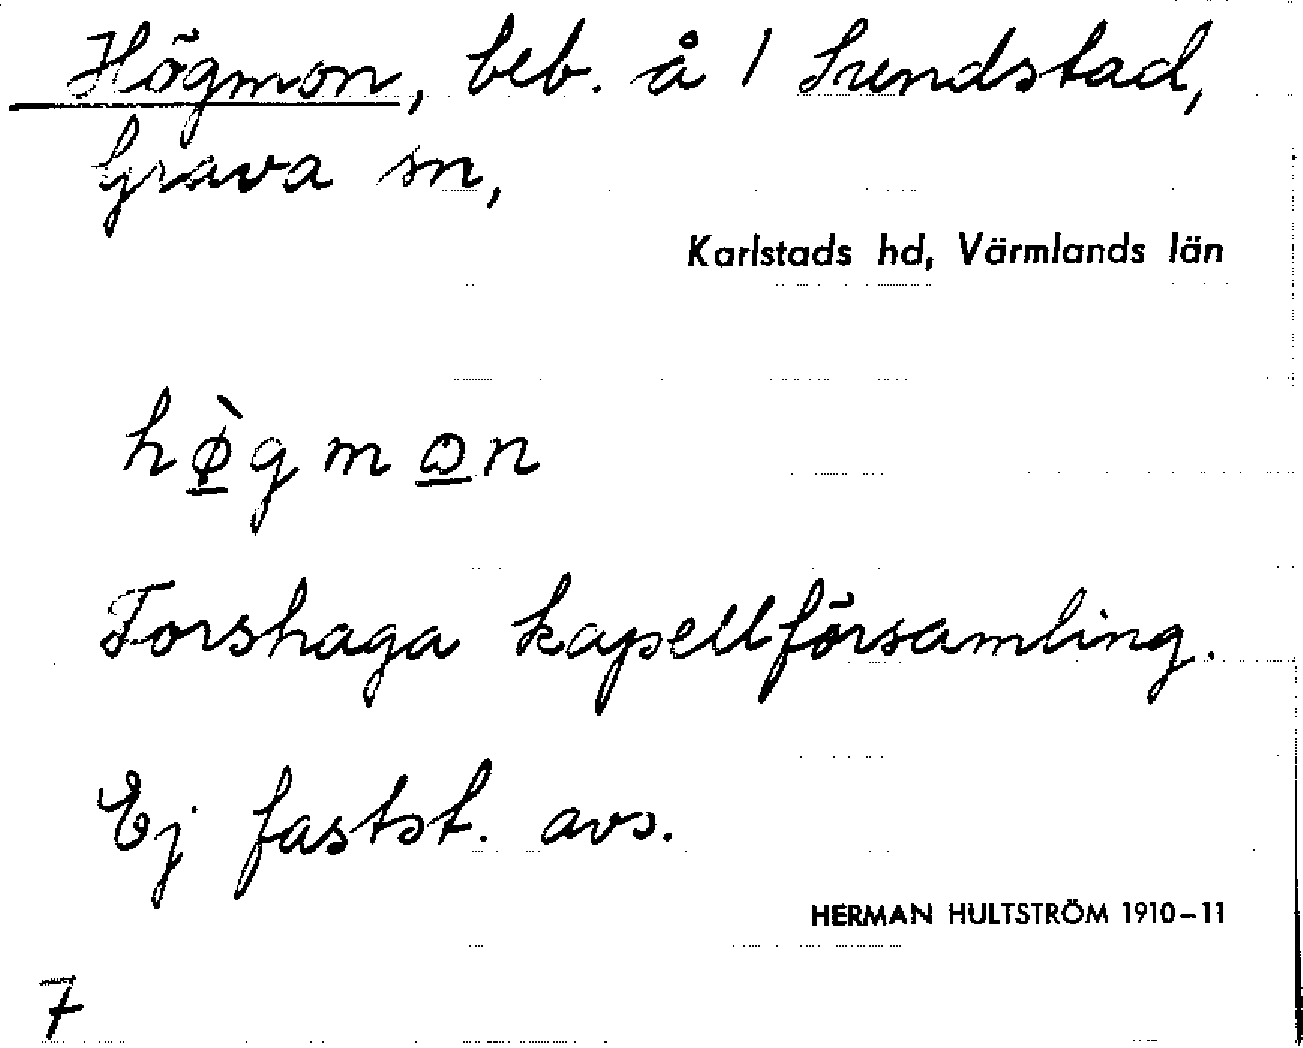 Högmon, beb. å 1 Sundstad,
Grava sn,
Karlstads hd, Värmlands län
hø̀gmon
Torshaga kapellförsamling.
Ej fastst. avs.
HERMAN HULTSTRÖM 1910–11
7